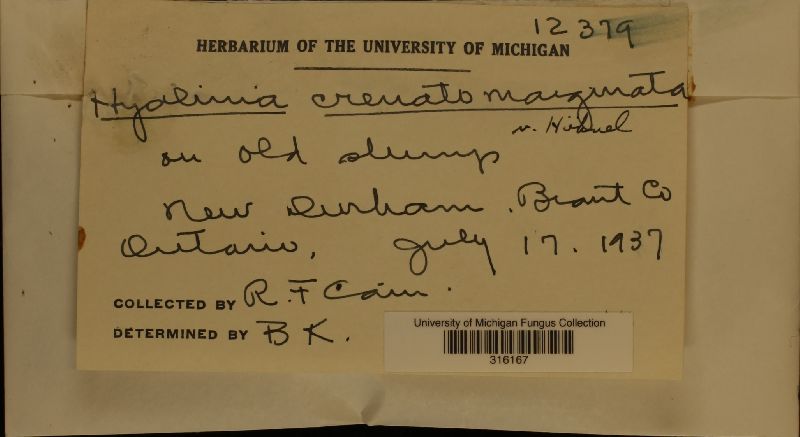 12379
HERBARIUM OF THE UNIVERSITY OF MICHIGAN
Hyalinia crenato marginata
v. Höhnel
on old stump
New Durham, Brant Co
Ontario, July 17. 1937
COLLECTED BY R. F Cain.
DETERMINED BY B K.
University of Michigan Fungus Collection
316167